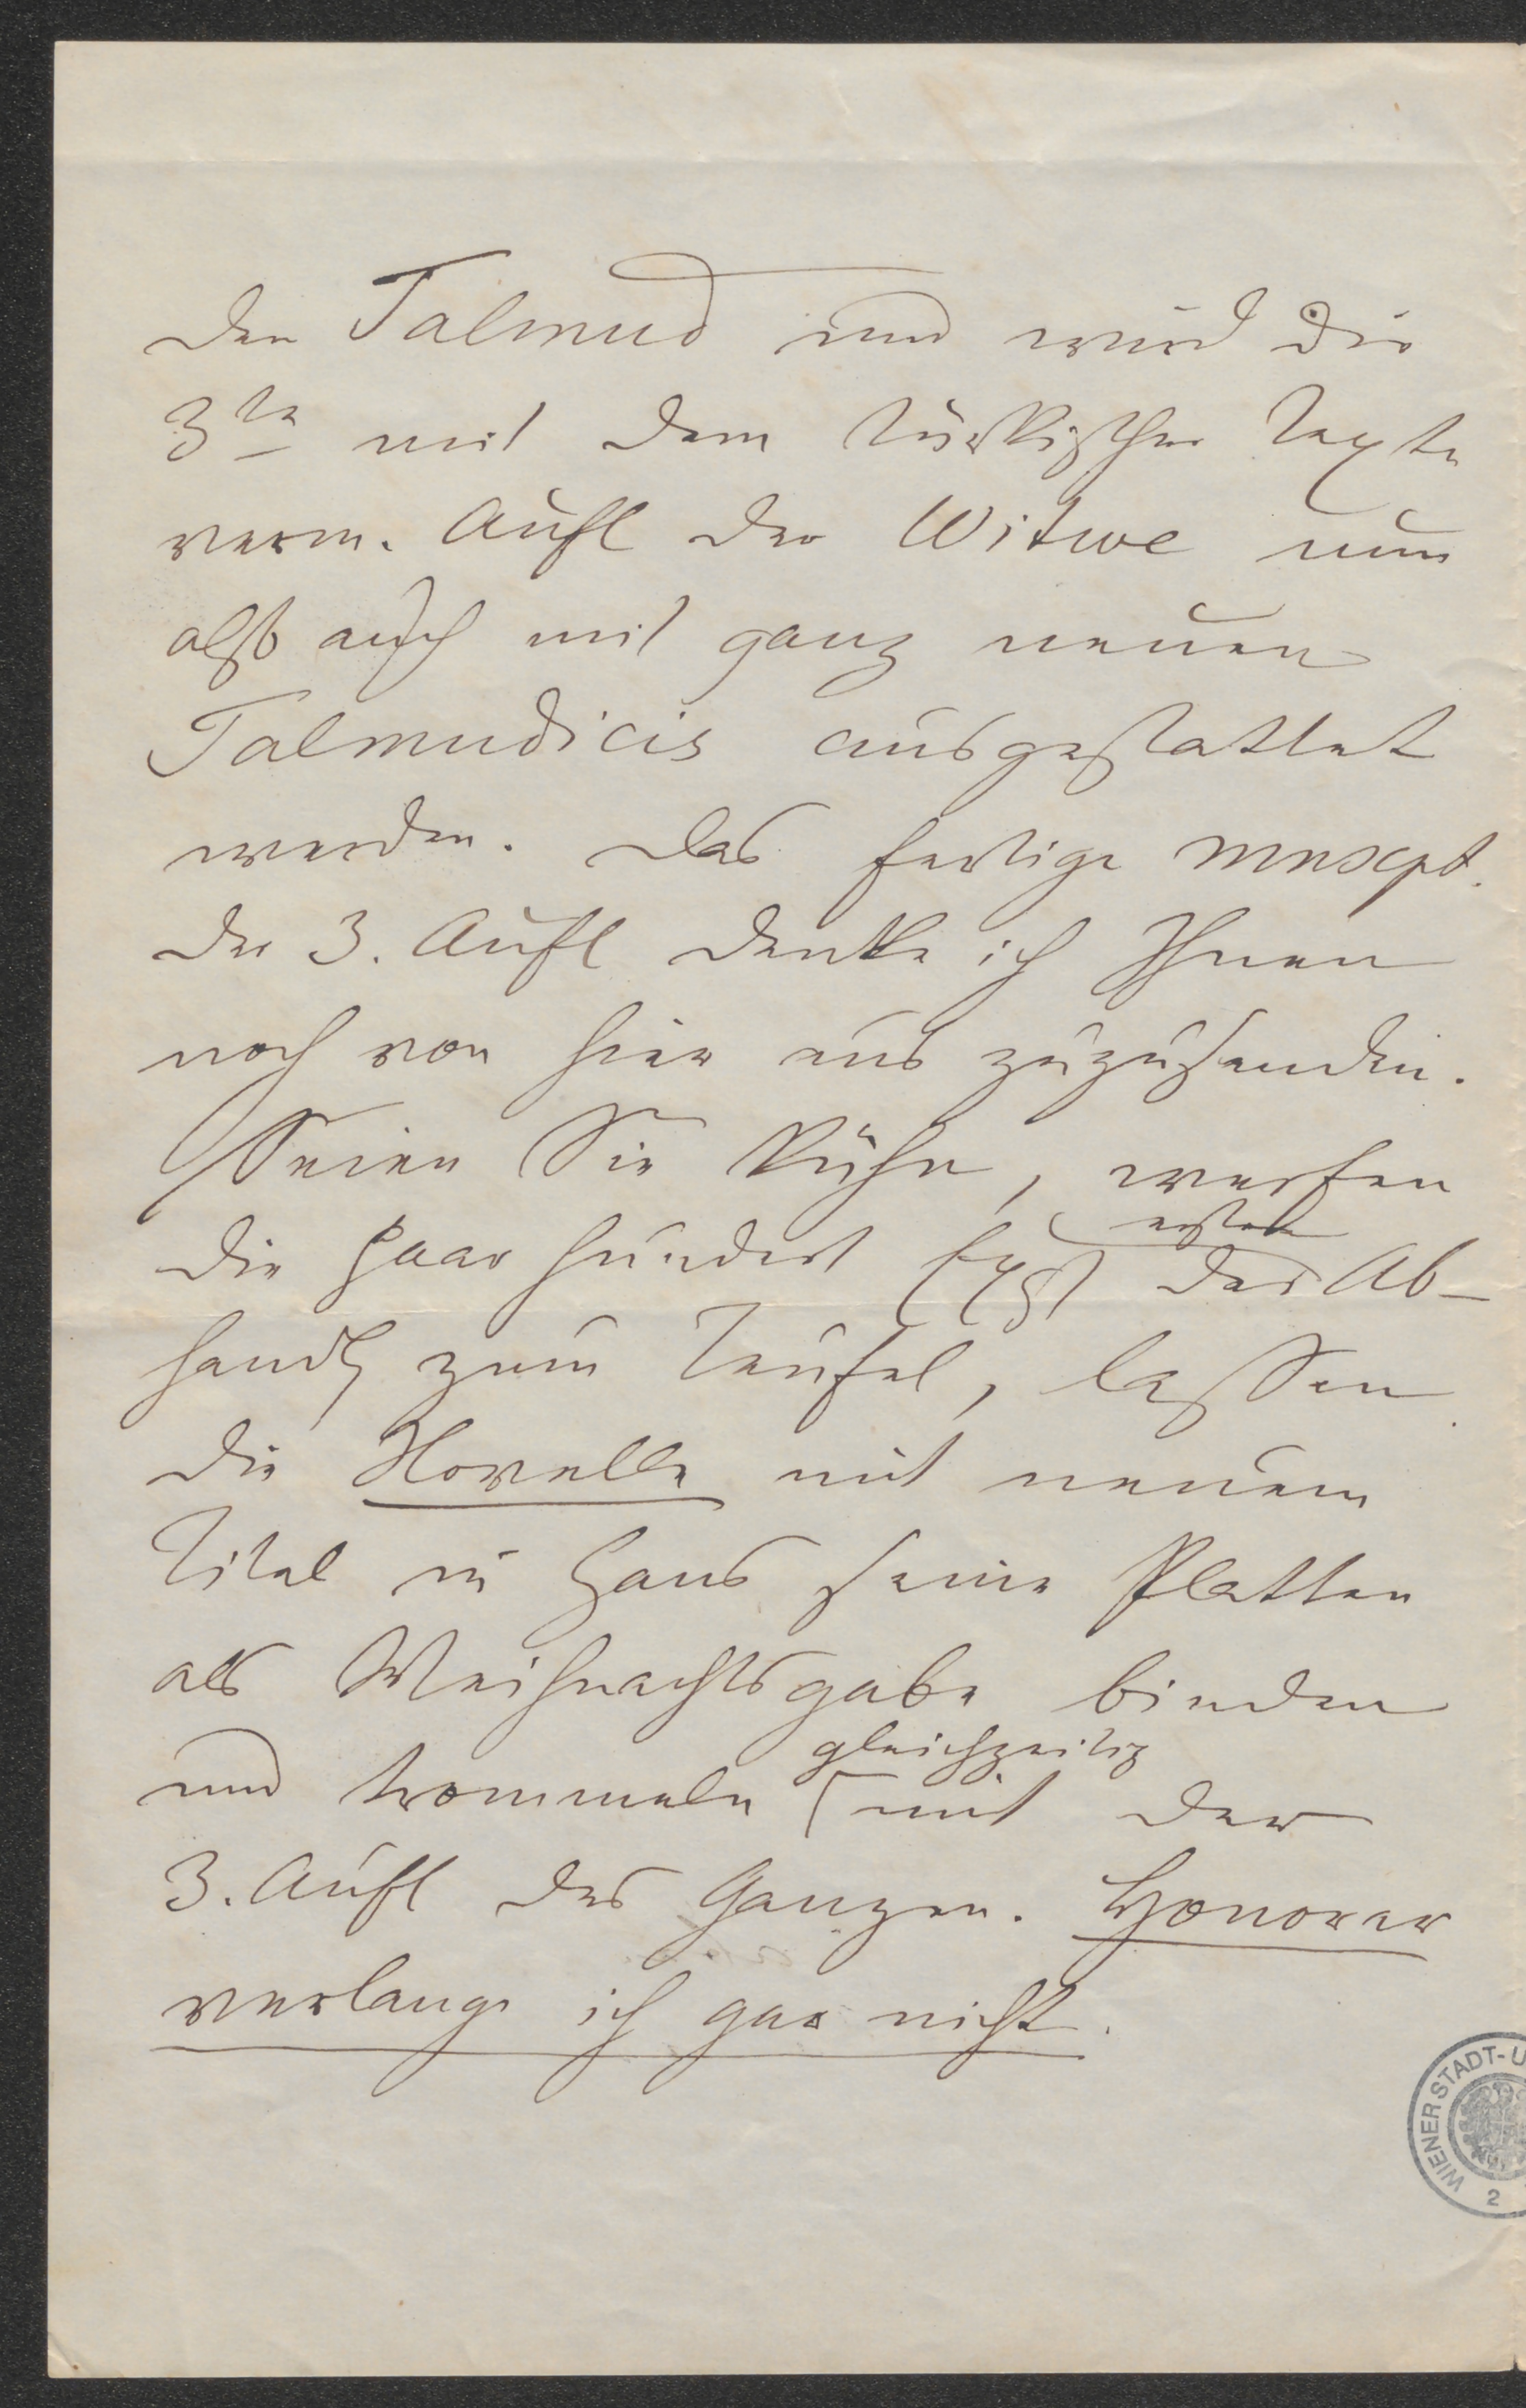 den Talmud und wird die
3te mit dem türkischen Texte
verm. Aufl der Witwe nun
also auch mit ganz neuen
Talmudicis ausgestattet
werden. Das fertige Mnscpt.
der 3. Aufl denke ich Ihnen
noch von hier aus zuzusenden.
Seien Sie kühn, werfen
die paar hundert Expl der Ab-
handlg zum Teufel, lassen
die Novelle mit neuem
Titel in Hans seine Platten
als Weihnachtsgabe binden
gleichzeitig
und trommeln mit der
3. Aufl des Ganzen. Honorar
verlange ich gar nicht.
WIENER STADT-U
2